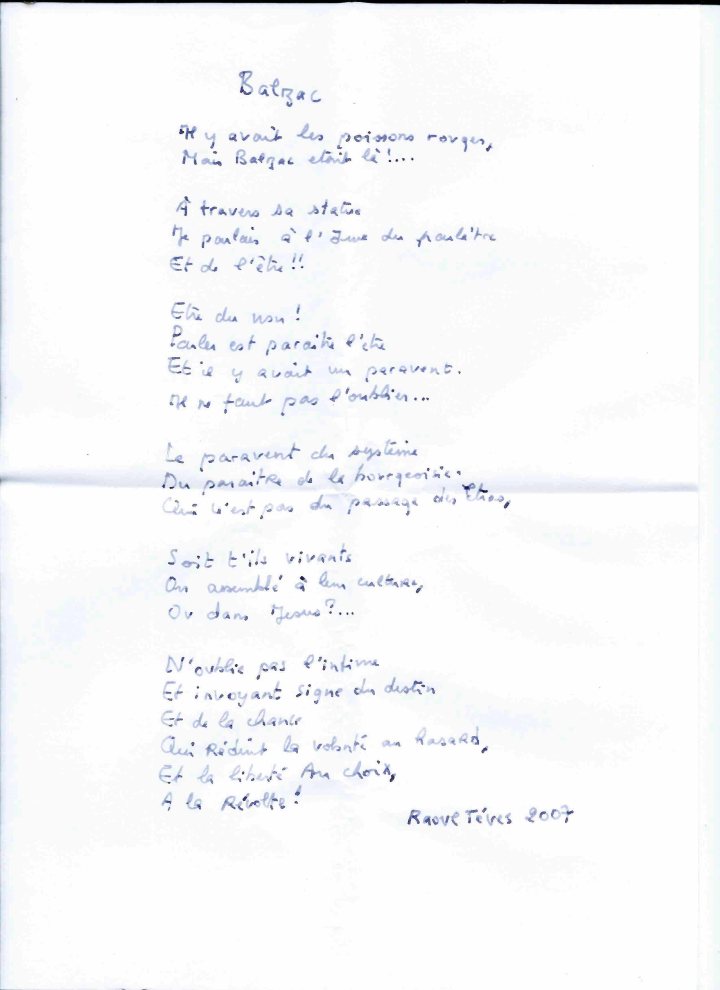 Balzac
Il y avait les poissons rouges,
Mais Balzac etait là!...
À travers sa statue
Je parlais à l' du
Et de l'être!!
Etre du non!
Parler est paraitre l'etre
Et il y avait un paravent.
Il ne faut pas l'oublier...
Le paravent du système
Du paraitRe de la bourgeoisie.
n'est pas du passage des
Soit t'ils vivants
On assemblé à leur culture,
Ou dans Jesus?...
N'oublie pas l'intime
Et invoyant signe du destin
Et de la chance
Qui Réduit la volonté au hasaRd,
Et la liberté Au choix,
A la Révolte!
Raoul Téves 2007